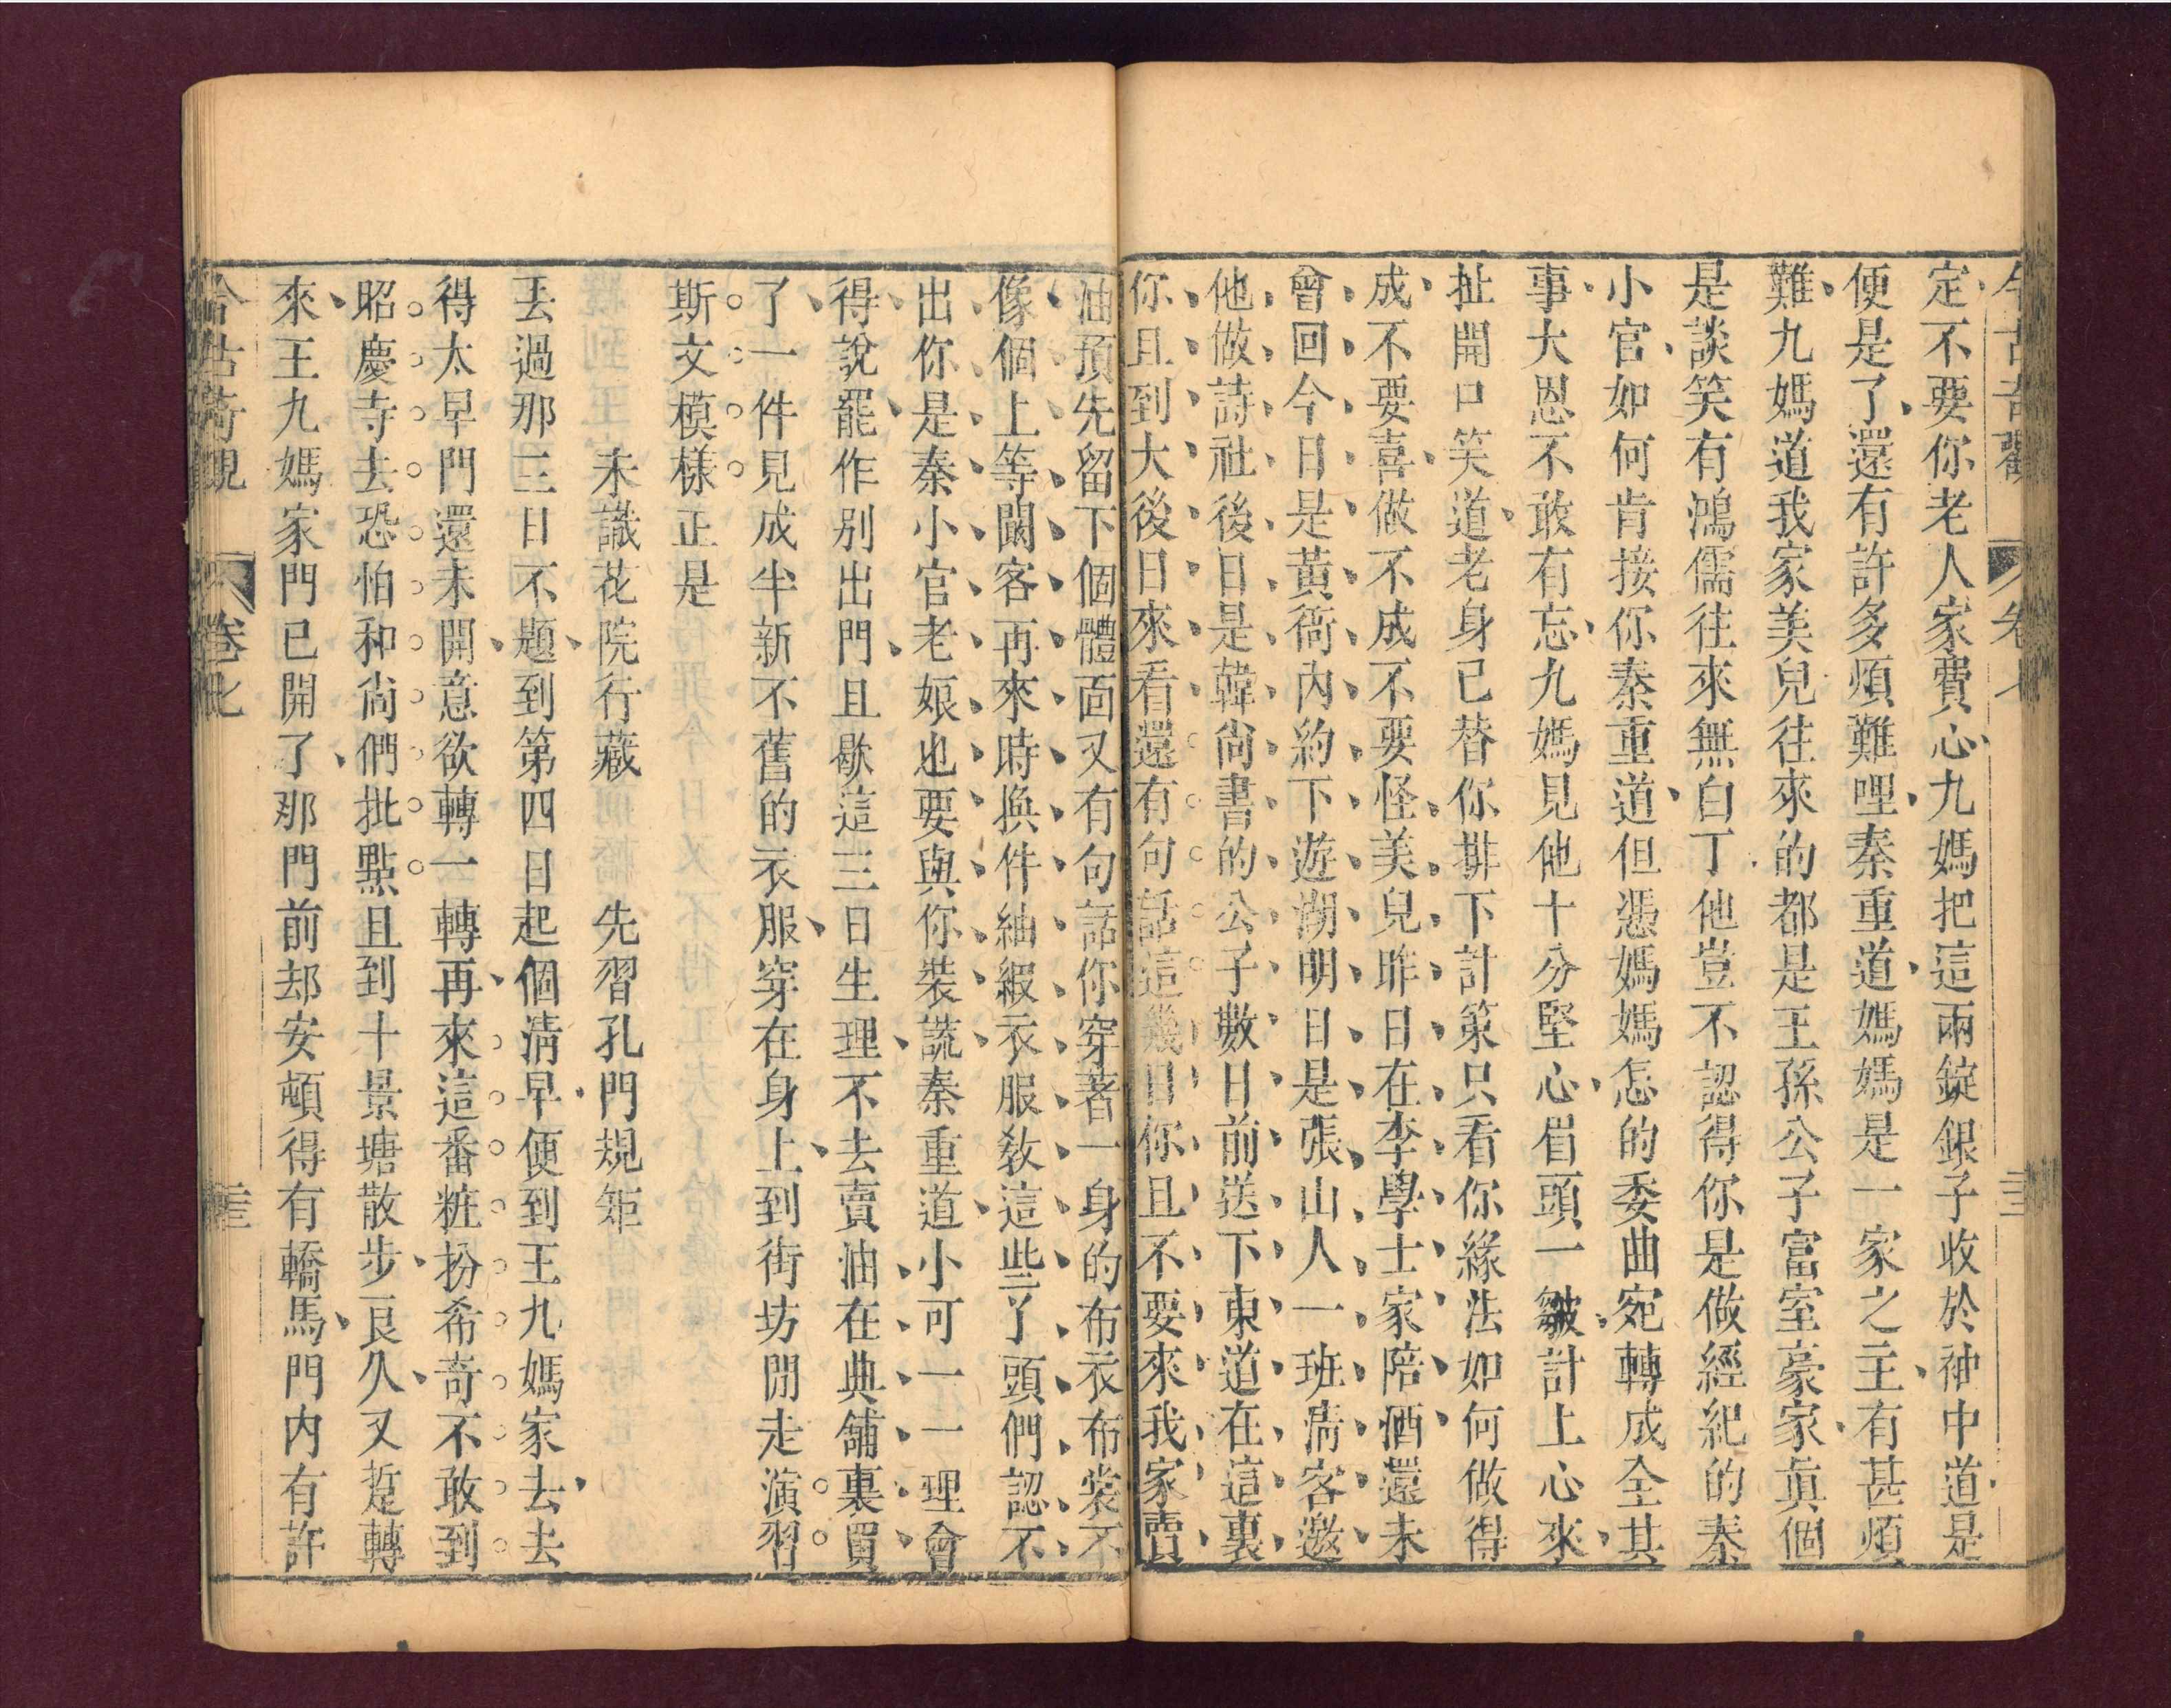 今古奇觀 卷七
定不要你老人家費心九媽把這兩錠銀子收於袖中道是
便是了還有許多煩難哩秦重道媽媽是一家之主有甚煩
難九媽道我家美兒往來的都是王孫公子富室豪家眞個
是談笑有鴻儒往來無白丁他豈不認得你是做經紀的秦
小官如何肯接你秦重道但憑媽媽怎的委曲宛轉成全其
事大恩不敢有忘九媽見他十分堅心眉頭一皺計上心來
扯開口笑道老身已替你排下計策只看你緣法如何做得
成不要喜做不成不要怪美兒昨日在李學士家陪酒還未
曾回今日是黃衙內約下遊湖明日是張山人一班淸客邀
他做詩社後日是韓尙書的公子數日前送下東道在這裏
你且到大後日來看還有句話這幾日你且不要來我家賣
油預先留下個體面又有句話你穿著一身的布衣布裳不
像個上等闝客再來時換件紬緞衣服敎這些丫頭們認不
出你是秦小官老娘也要與你裝謊秦重道小可一一理會
得說罷作别出門且歇這三日生理不去賣油在典舖裏買
了一件見成半新不舊的衣服穿在身上到街坊閒走演習
斯文模樣正是
未識花院行藏 先習孔門規矩
丟過那三日不題到第四日起個淸早便到王九媽家去去
得太早門還未開意欲轉一轉再來這番粧扮希奇不敢到
昭慶寺去恐怕和尙們批點且到十景塘散步良久又踅轉
來王九媽家門已開了那門前却安頓得有轎馬門内有許
今古奇觀 卷七